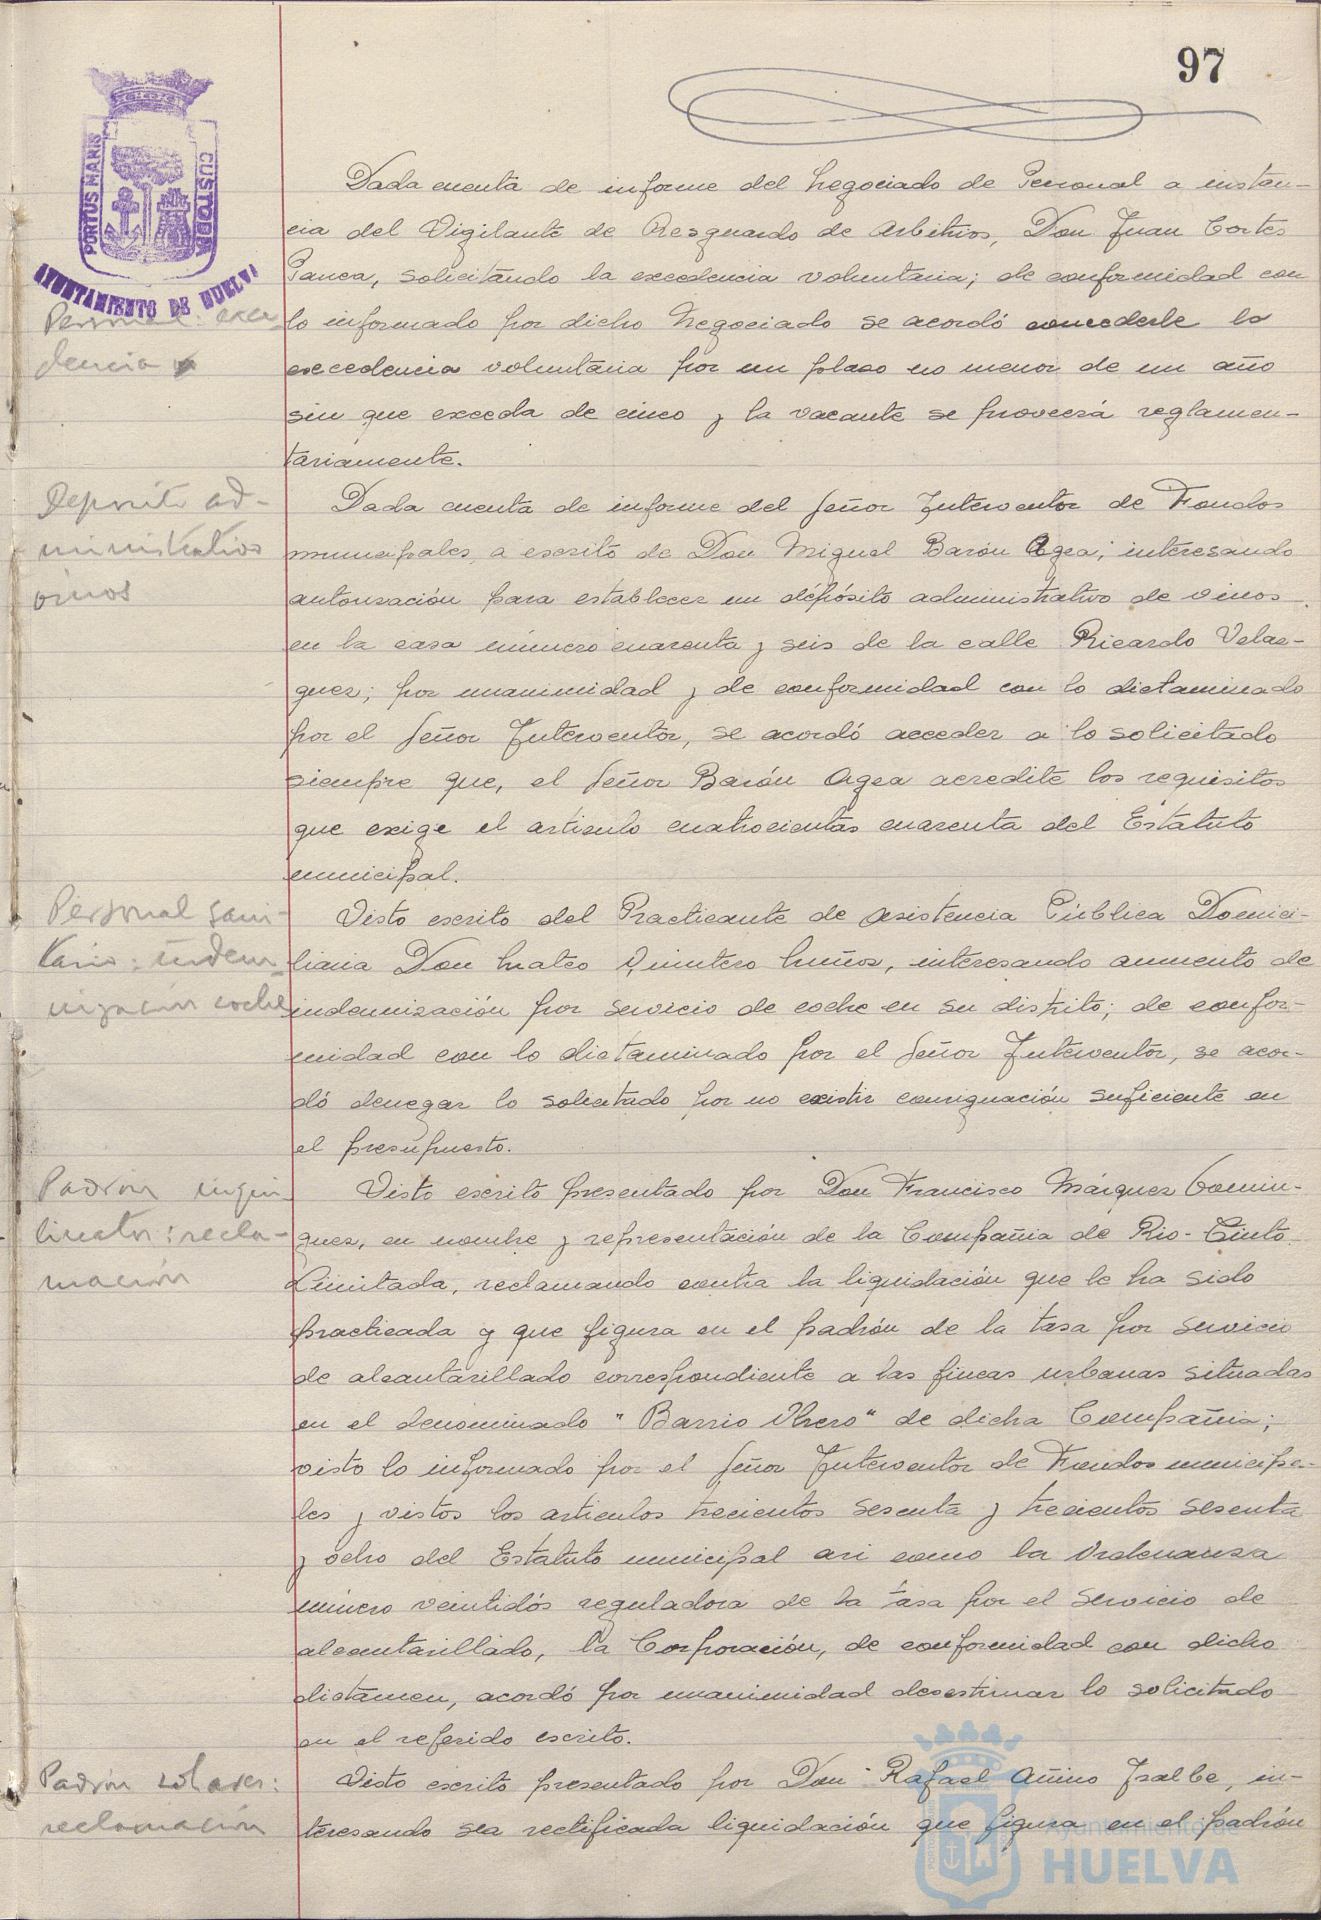 97
PORTUS MARIS CUSTODIA
AYUNTAMIENTO DE HUELVA
Dada cuenta de informe del Negociado de Personal a instan-
cia del Vigilante de Resguardo de Arbitrios, Don Juan Cortes
solicitando la excedencia voluntaria; de conformidad con
Personal: exce-
lo informado por dicho Negociado se acordó concederle la
dencia
excedencia voluntaria por un plazo no menor de un año
sin que exceda de cinco y la vacante se proveerá reglamen-
tariamente.
Deposito ad-
Dada cuenta de informe del Señor Interventor de Fondos
ministrativo
municipales, a escrito de Don Miguel Barón Agea; interesando
vinos
autorización para establecer un depósito administrativo de vinos
en la casa número cuarenta y seis de la calle Ricardo Velaz-
quez; por unanimidad y de conformidad con lo dictaminado
por el Señor Interventor, se acordó acceder a lo solicitado
siempre que, el Señor Barón Agea acredite los requisitos
que exige el artículo cuatrocientos cuarenta del Estatuto
municipal.
Personal sani-
Visto escrito del Practicante de Asistencia Pública Domici-
tario: indem-
liaria Don Mateo Quintero Muñoz, interesando aumento de
nización coche
indemnización por servicio de coche en su distrito; de confor-
midad con lo dictaminado por el Señor Interventor, se acor-
dó denegar lo solicitado por no existir consignación suficiente en
el presupuesto.
Padrón inqui-
Visto escrito presentado por Don Francisco Márquez Domin-
linatos: recla-
guez, en nombre y representación de la Compañia de Rio-Tinto
mación
Limitada, reclamando contra la liquidación que le ha sido
practicada y que figura en el padrón de la tasa por servicio
de alcantarillado correspondiente a las fincas urbanas situadas
en el denominado "Barrio Obrero" de dicha Compañia;
visto lo informado por el Señor Interventor de Fondos municipa-
les y vistos los artículos trecientos sesenta y trecientos sesenta
y ocho del Estatuto municipal asi como la Ordenanza
número veintidós reguladora de la tasa por el servicio de
alcantarillado, la Corporación, de conformidad con dicho
dictamen, acordó por unanimidad desestimar lo solicitado
en el referido escrito.
Padrón solares:
Visto escrito presentado por Don Rafael in-
reclamación
teresando sea rectificada liquidación que figura en el padrón
Ayuntamiento de
HUELVA